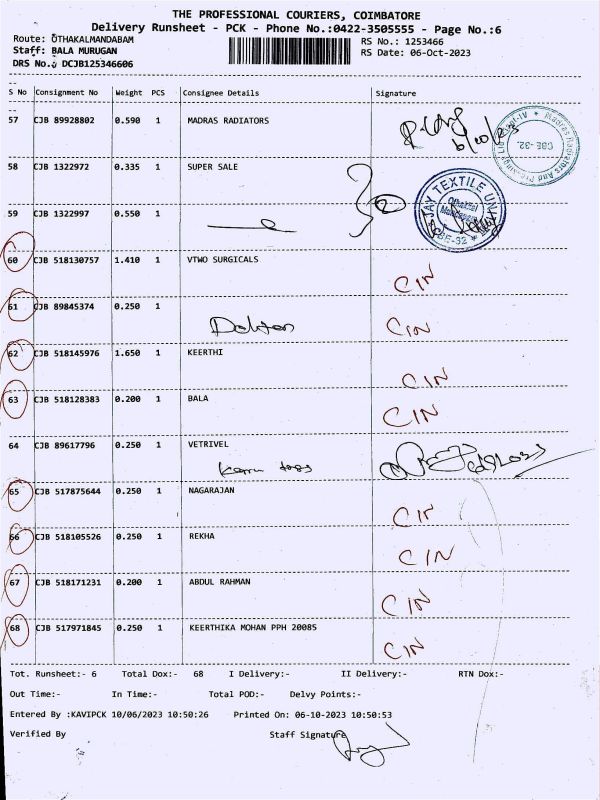 THE PROFESSIONAL COURIERS, COIMBATORE
Delivery Runsheet - PCK - Phone No.:0422-3505555 - Page No.:6
Route: OTHAKALMANDABAM RS No.: 1253466
Staff: BALA MURUGAN RS Date: 06-Oct-2023
DRS No.: DCJB125346606
S No Consignment No Weight PCS Consignee Details Signature
57 CJB 89928802 0.590 1 MADRAS RADIATORS
58 CJB 1322972 0.335 1 SUPER SALE
59 CJB 1322997 0.550 1
JAY TEXTILE UNIT
CBE-32
60 CJB 518130757 1.410 1 VTWO SURGICALS
CIN
61 CJB 89845374 0.250 1
CIN
62 CJB 518145976 1.650 1 KEERTHI
CIN
63 CJB 518128383 0.200 1 BALA
CIN
64 CJB 89617796 0.250 1 VETRIVEL
65 CJB 517875644 0.250 1 NAGARAJAN
CIN
66 CJB 518105526 0.250 1 REKHA
CIN
67 CJB 518171231 0.200 1 ABDUL RAHMAN
CIN
68 CJB 517971845 0.250 1 KEERTHIKA MOHAN PPH 20085
CIN
Tot. Runsheet:- 6 Total Dox:- 68 I Delivery:- II Delivery:- RTN Dox:-
Out Time:- In Time:- Total POD:- Delvy Points:-
Entered By :KAVIPCK 10/06/2023 10:50:26 Printed On: 06-10-2023 10:50:53
Verified By Staff Signature